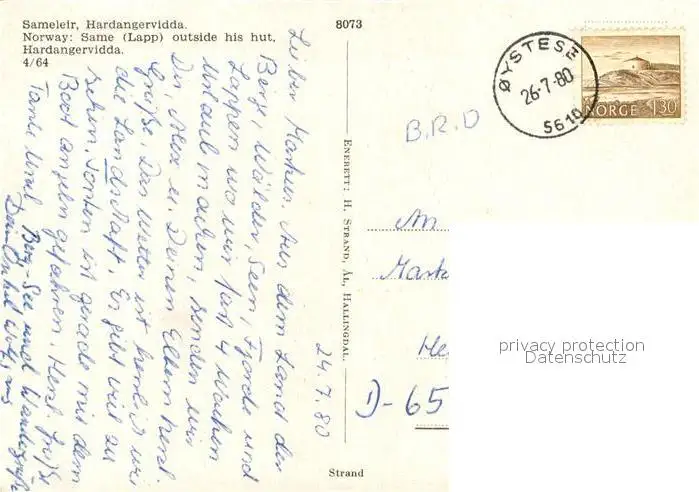 Sameleir, Hardangervidda.
Norway: Same (Lapp) outside his hut,
Hardangervidda.
4/64
8073
ØYSTESE
26-7-80
5610
NORGE 130
B.R.D
ENERETT: H. STRAND, ÅL, HALLINGDAL.
24.7.80
Lieber Markus. Aus dem Land der
Berge, Wälder, Seen, Fjorde und
Lappen wo wir fast 4 Wochen
Urlaub machen, senden wir
Dir, Alex u. Deinen Eltern herzl.
Grüße. Das Wetter ist herrlich wie
die Landschaft. Es gibt viel zu
sehen. ist gerade mit dem
Boot angeln gefahren. Herzl. Grüße
Tante Ursel
Berg-See und Wandergrüße
Dein Onkel Wolfgang
An
Mark
He
D-65
privacy protection
Datenschutz
Strand